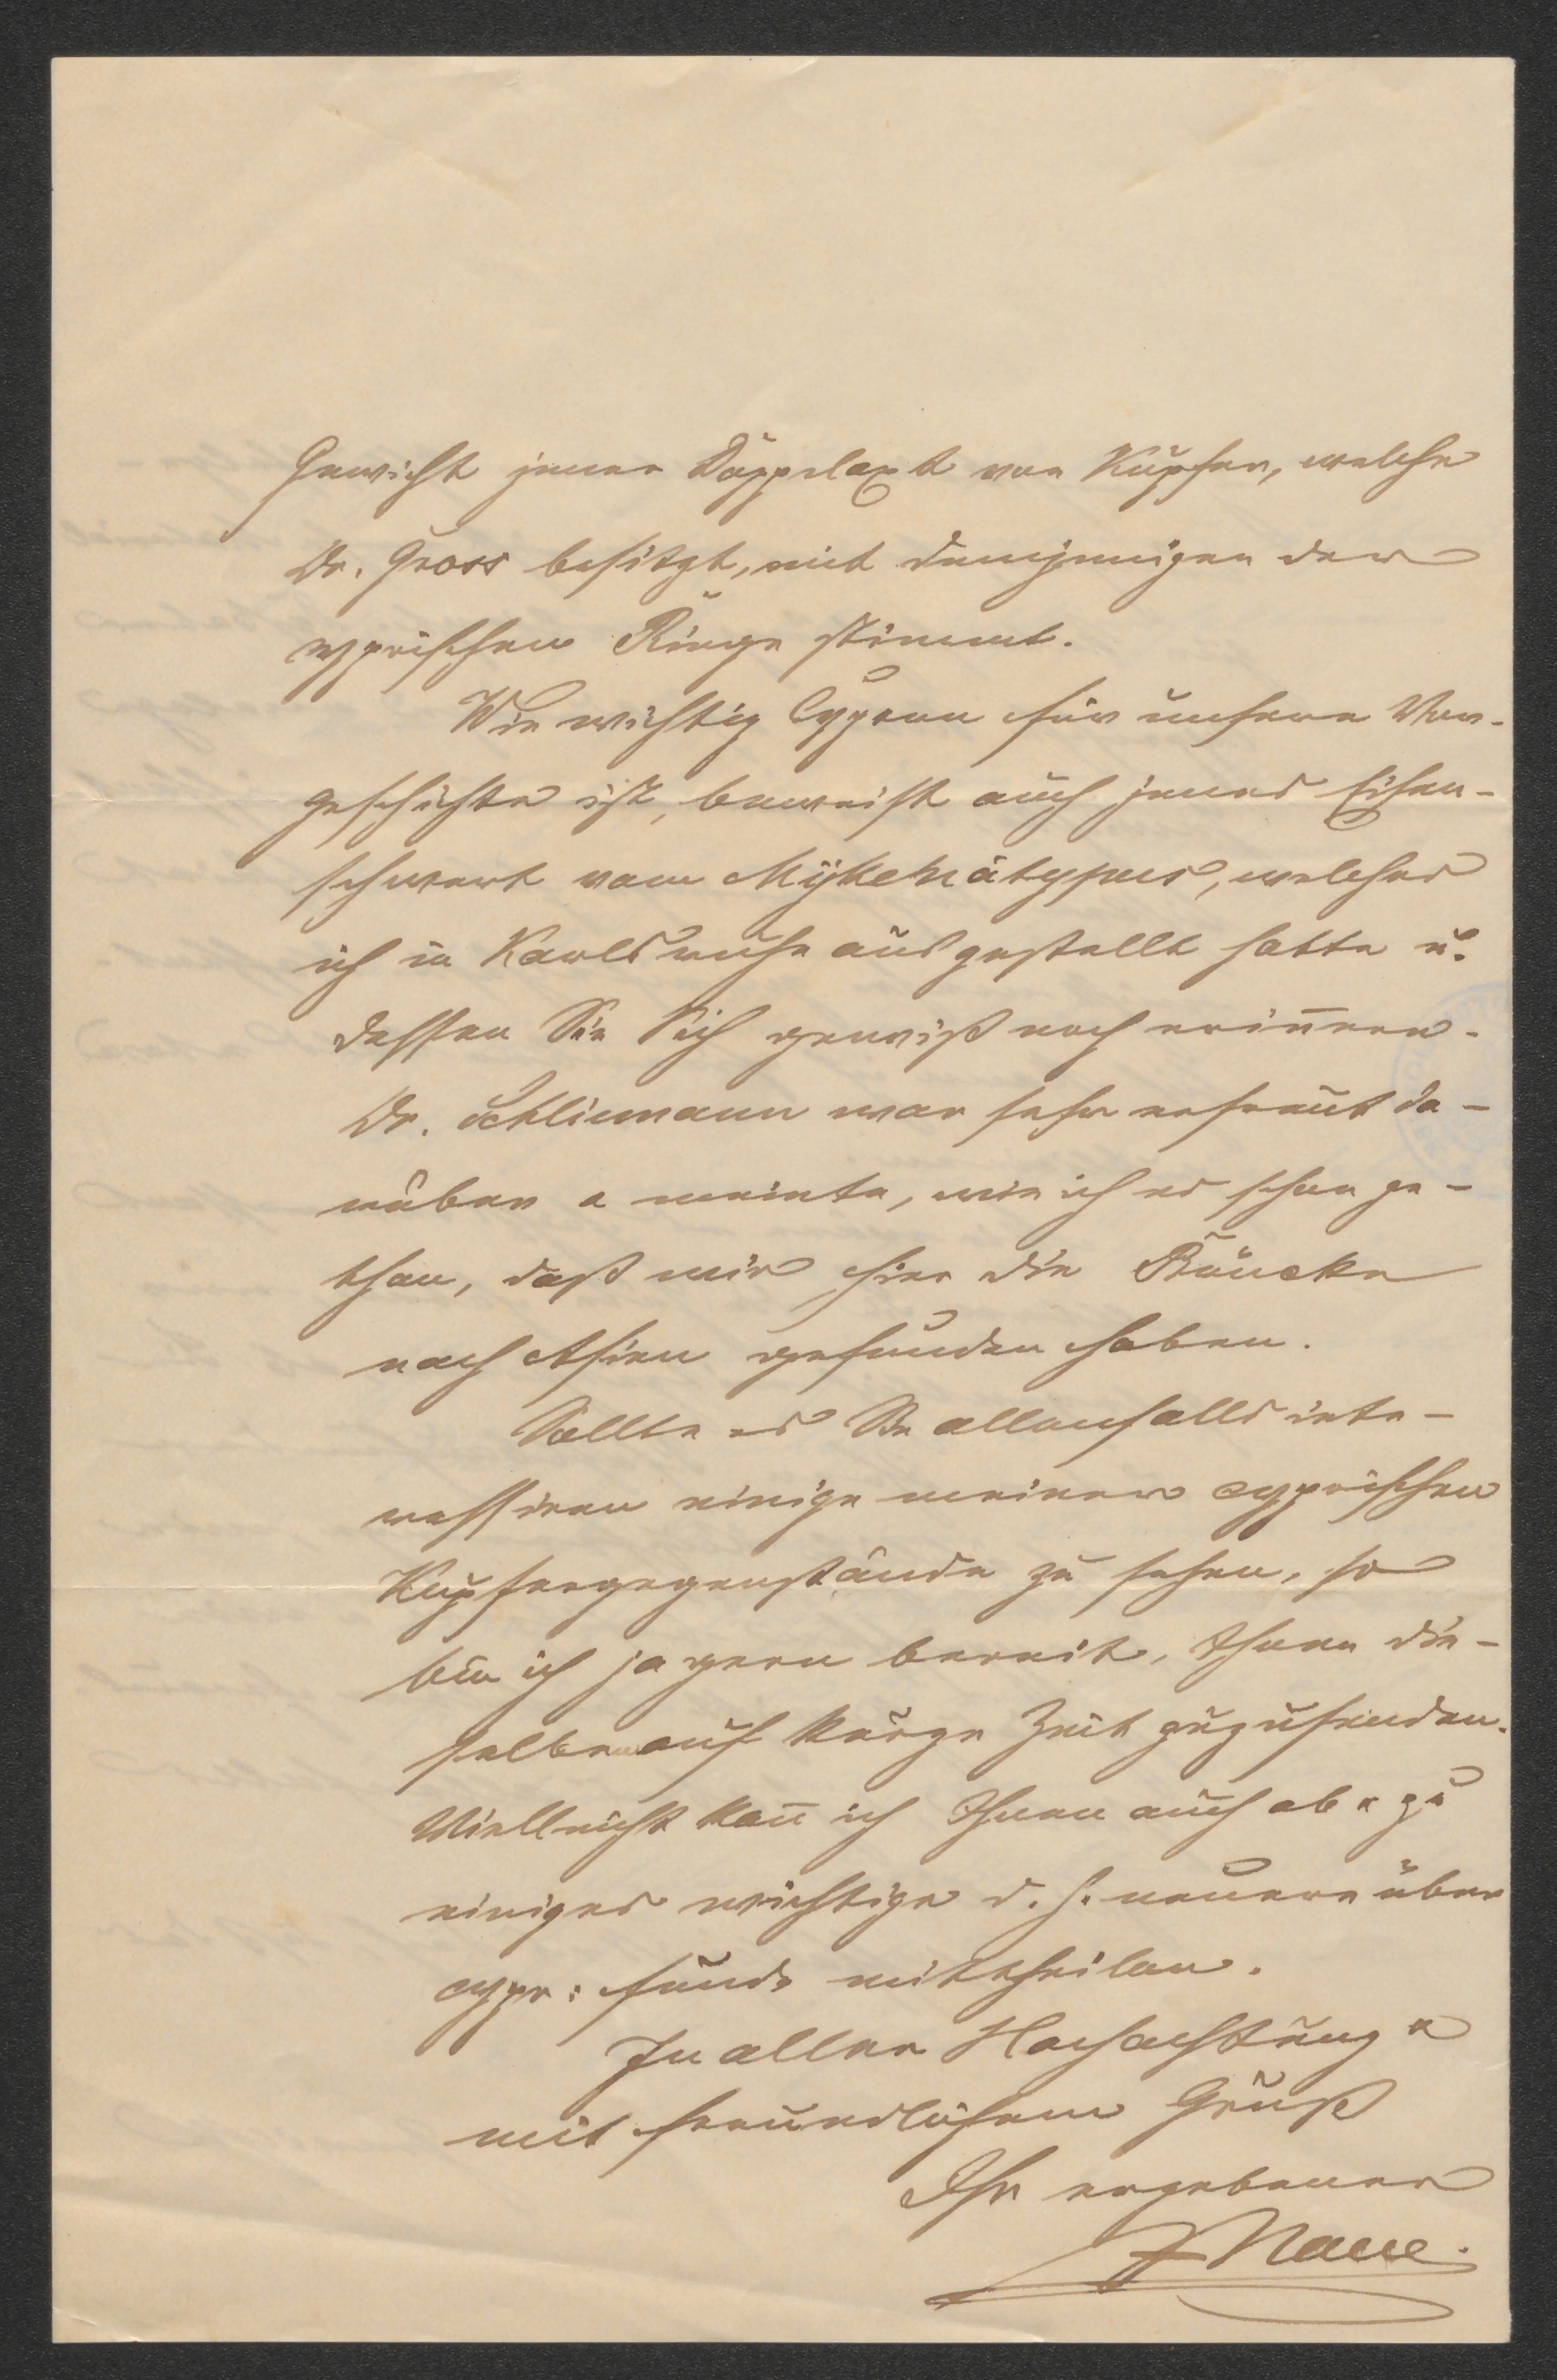 Gewicht jener Doppelaxt von Kupfer, welche
Dr. Gross besitzt, mit demjenigen der
cyprischen Ringe stimmt.
Wie wichtig Cypern für unsere Vor-
geschichte ist, beweist auch jenes Eisen-
schwert vom Mykenätypus, welches
ich in Karlsruhe ausgestellt hatte u.
dessen Sie Sich gewiß noch erinnern.
Dr. Schliemann war sehr erfreut da-
rüber u meinte, wie ich es schon ge-
than, daß wir hier die Brücke
nach Asien gefunden haben.
Sollte es Sie allenfalls inte-
ressiren einige meiner cyprischen
Kupfergegenstände zu sehen, so
bin ich ja gern bereit, Ihnen die-
selben auf kurze Zeit zuzusenden.
Vielleicht kan̄ ich Ihnen auch ab u zu
einiges wichtige d. h. neuere über
cypr: Funde mittheilen.
In aller Hochachtung u
mit freundlichem Gruß
Ihr ergebener
J Naue.